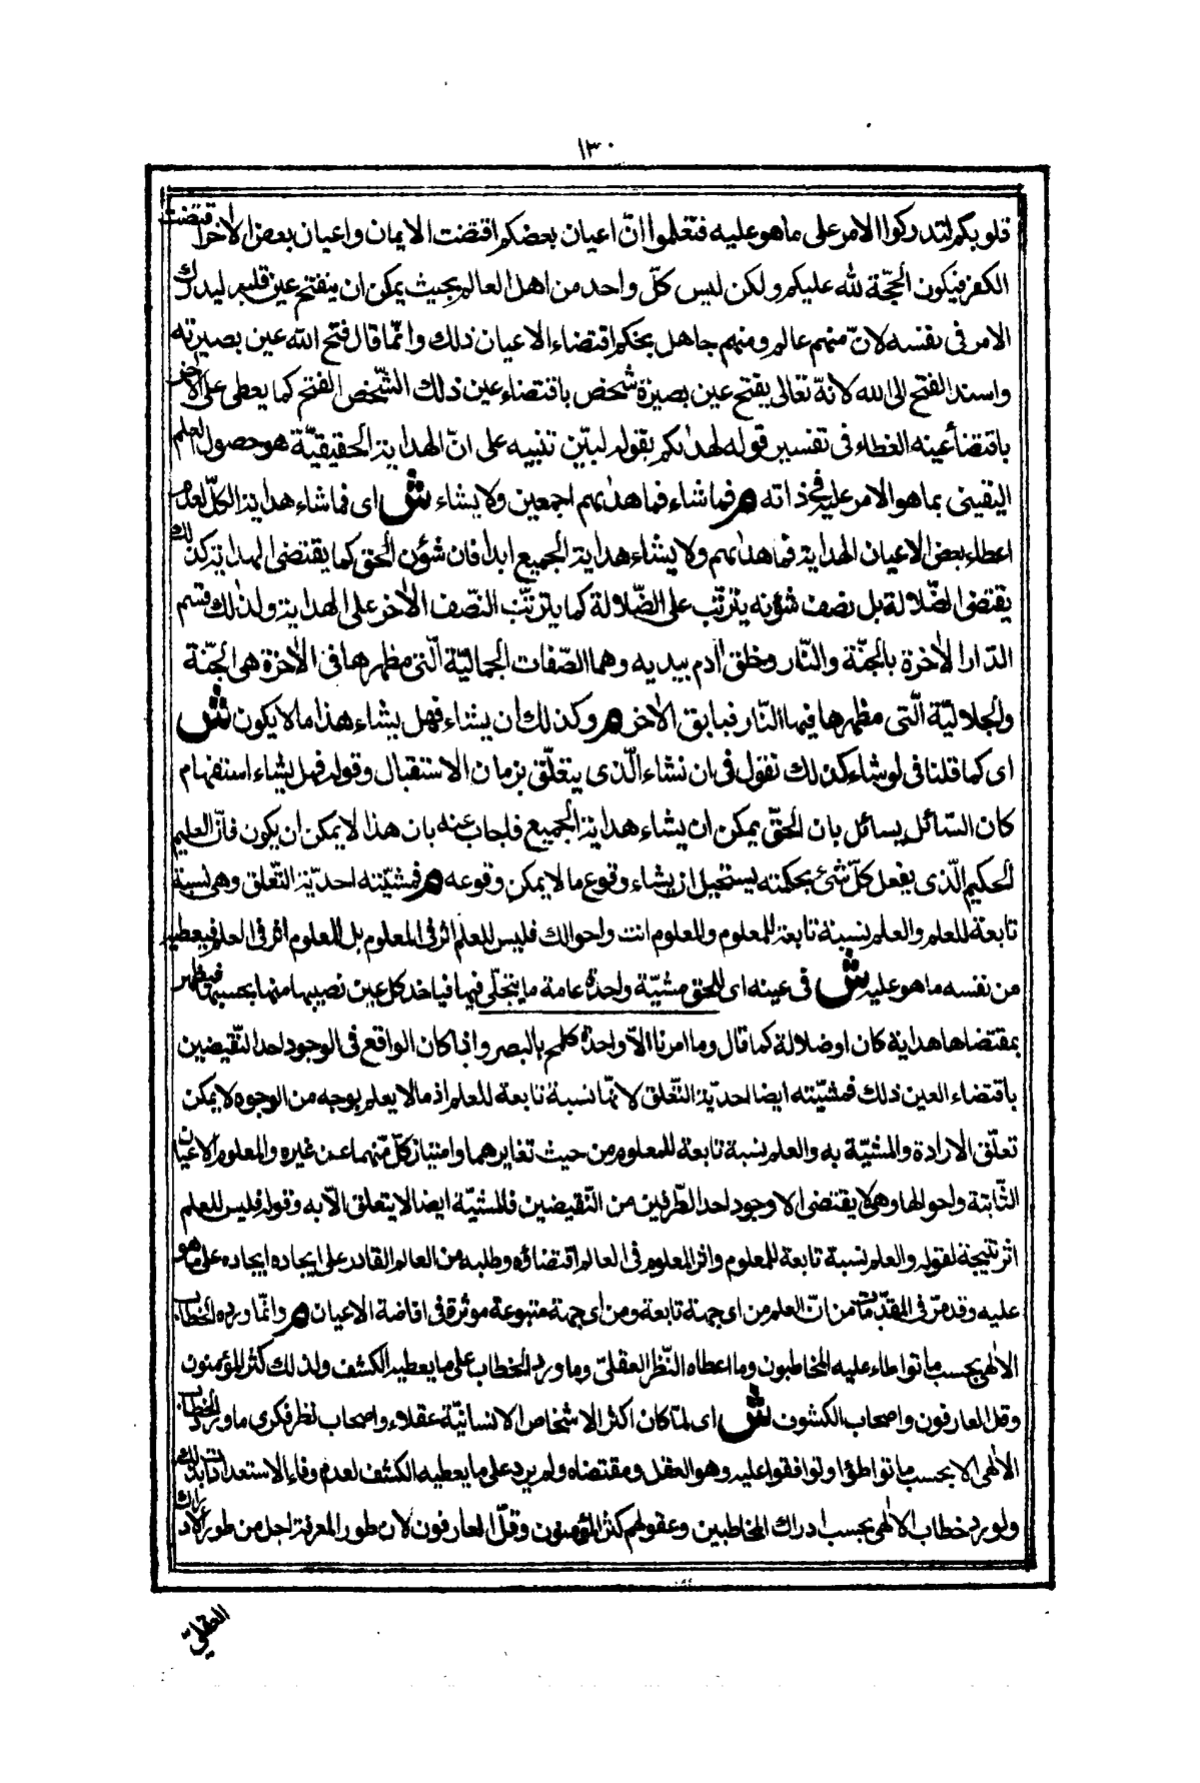 ١٣٠
قلوبكم لتدركوا الامر على ما هو عليه فتعلموا انّ اعيان بعضكم اقتضت الايمان واعيان بعض الاخر اقتضت
الكفر فيكون الحجّة لله عليكم ولكن ليس كلّ واحد من اهل العالم بحيث يمكن ان ينفتح عين قلبه ليدرك
الامر فى نفسه لانّ منهم عالم ومنهم جاهل بحكم اقتضاء الاعيان ذلك وانّما قال فتح الله عين بصيرته
واسند الفتح الى الله لانّه تعالى يفتح عين بصيرة شخص باقتضاء عين ذلك الشّخص الفتح كما يعطى على الاخر
باقتضاء عينه الغطاء فى تفسير قوله لهدٰىكم بقوله لبيّن تنبيه على انّ الهداية الحقيقيّة هو حصول العلم
اليقينى بما هو الامر عليه فى ذاته م فما شاء فما هدٰىهم اجمعين ولا يشاء ش اى فما شاء هداية الكلّ لعدم
اعطاء بعض الاعيان الهداية فما هداهم ولا يشاء هداية الجميع ابدا فان شؤن الحق كما يقتضى الهداية كذلك
يقتضى الضّلالة بل نصف شؤنه يترتّب على الضّلالة كما يترتّب النصّف الاخر على الهداية ولذلك قسم
الدّار الاخرة بالجنّة والنّار وخلق اٰدم بيديه وهما الصّفات الجماليّة الّتى مظهرها فى الاخرة هى الجنّة
والجلاليّة الّتى مظهرها فيها النّار فبابق الاخر م وكذلك ان يشاء فهل يشاء هذا ما لا يكون ش
اى كما قلنا فى لو شاء كذلك نقول فى ان نشاء الّذى يتعلّق بزمان الاستقبال وقوله فهل يشاء استفهام
كان السّائل يسائل بان الحقّ يمكن ان يشاء هداية الجميع فاجاب عنه بان هذا لا يمكن ان يكون فانّ العليم
الحكيم الّذى يفعل كلّ شئ بحكمته يستحيل ان يشاء وقوع ما لا يمكن وقوعه م فمشيّته احديّة التّعلق وهى نسبة
تابعة للعلم والعلم نسبة تابعة للمعلوم والمعلوم انت واحوالك فليس للعلم اثر فى المعلوم بل للمعلوم اثر فى العلم فيعطيه
من نفسه ما هو عليه ش فى عينه اى للحق مشيّة واحدة عامة ما يتجلّى فيها فياخذ كل عين نصيبها منها بحسبها فيظهر
بمقتضاها هداية كان او ضلالة كما قال وما امرنا الاّ واحدة كلمح بالبصر واذا كان الواقع فى الوجود احد النّقيضين
باقتضاء العين ذلك فمشيّته ايضا احديّة التّعلق لانّها نسبة تابعة للعلم اذ ما لا يعلم بوجه من الوجوه لا يمكن
تعلّق الارادة والمشيّة به والعلم نسبة تابعة للمعلوم من حيث تغايرهما وامتياز كلّ منهما عن غيره والمعلوم الاعيان
الثّابتة واحوالها وهى لا يقتضى الا وجود احد الطّرفين من النّقيضين فالمشيّة ايضا لا يتعلق الاّ به وقوله فليس للعلم
اثر نتيجة لقوله والعلم نسبة تابعة للمعلوم واثر المعلوم فى العالم اقتضاؤه وطلبه من العالم القادر على ايجاده ايجاده على ما هو
عليه وقد مرّ فى المقدّمات من انّ العلم من اى جهة تابعة ومن اى جهة متبوعة موثرة فى افاضة الاعيان م وانّما ورد الخطاب
الالٰهى بحسب ما تواطاء عليه المخاطبون وما اعطاه النّظر العقلىّ وما ورد الخطاب على ما يعطيه الكشف ولذلك كثر المؤمنون
وقلّ العارفون واصحاب الكشوف ش اى لمّا كان اكثر الاشخاص الانسانيّة عقلاء واصحاب نظر فكرى ما ورد الخطاب
الالٰهى الا بحسب ما تواطؤا وتوافقوا عليه وهو العقل ومقتضاه ولم يرد على ما يعطيه الكشف لعدم وفاء الاستعدادات بذلك
ولورد خطاب الالٰهى بحسب ادراك المخاطبين وعقولهم كثر المؤمنون وقلّ العارفون لان طور المعرفة اجل من طور الادراك
العقلىّ